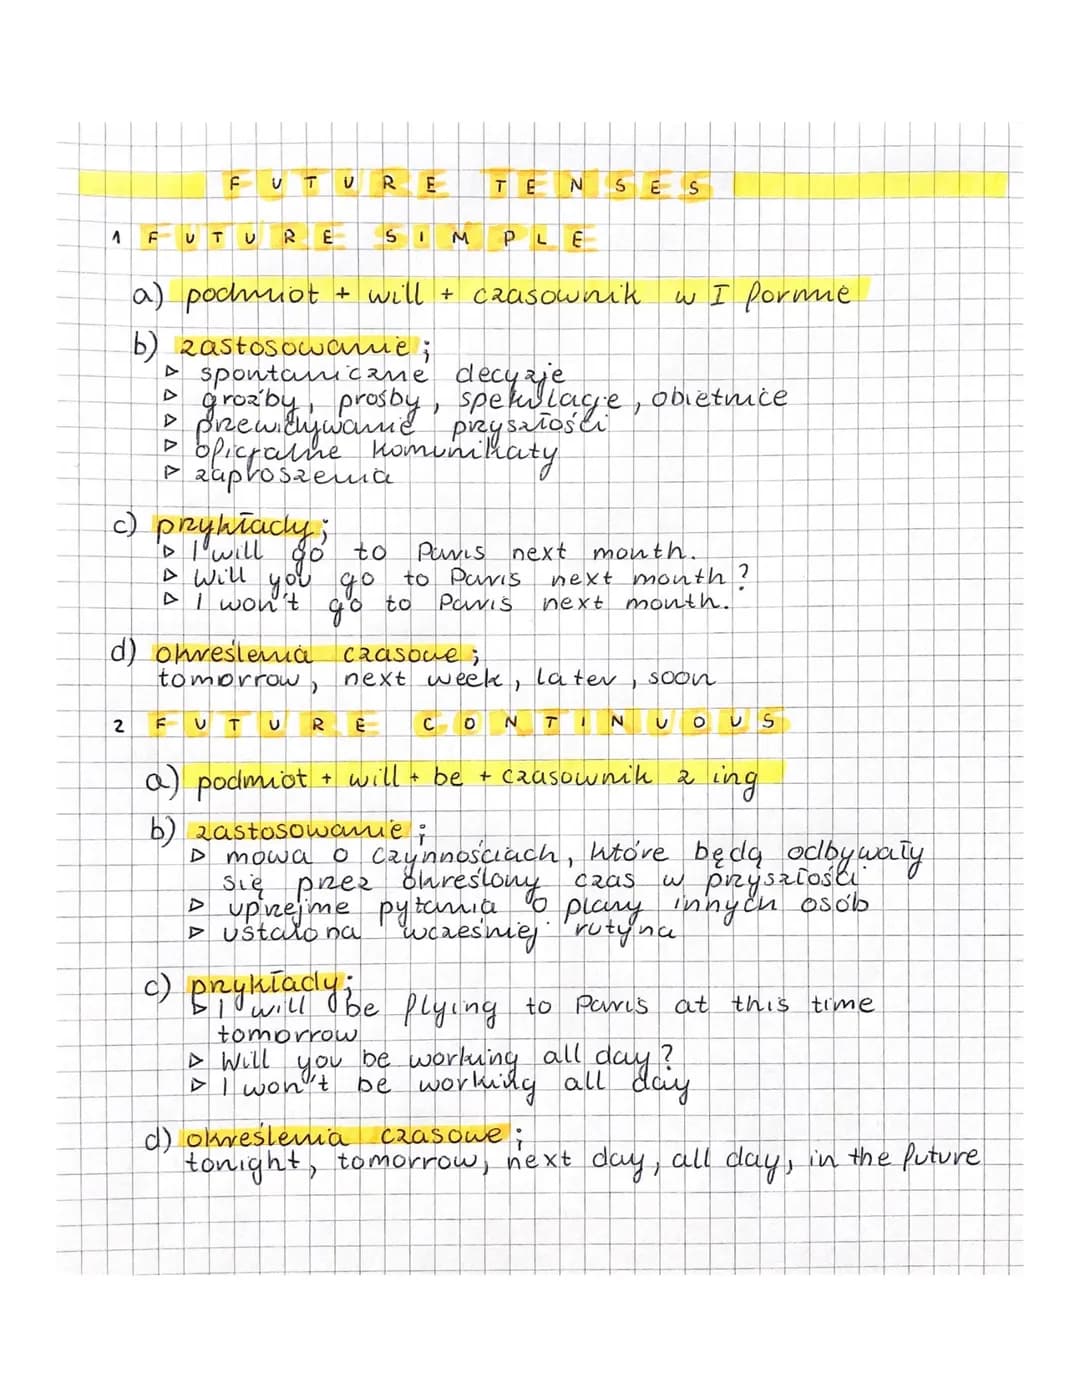 FUTURE TENSES
1 FUTURE SIMPLE
a) podmiot + will + czasownik w I formie
b) zastosowanie;
▷ spontaniczne decyzje
▷ groźby, prośby, spekulacje, obietnice
▷ przewidywanie przyszłości
▷ oficjalne komunikaty
▷ zaproszenia
c) przykłady;
▷ I will go to Paris next month.
▷ Will you go to Paris next month?
▷ I won't go to Paris next month.
d) określenia czasowe;
tomorrow, next week, later, soon
2 FUTURE CONTINUOUS
a) podmiot + will + be + czasownik z ing
b) zastosowanie;
▷ mowa o czynnościach, które będą odbywały
się przez określony czas w przyszłości
▷ uprzejme pytania o plany innych osób
▷ ustalona wcześniej rutyna
c) przykłady;
▷ I will be flying to Paris at this time
tomorrow
▷ Will you be working all day?
▷ I won't be working all day
d) określenia czasowe;
tonight, tomorrow, next day, all day, in the future